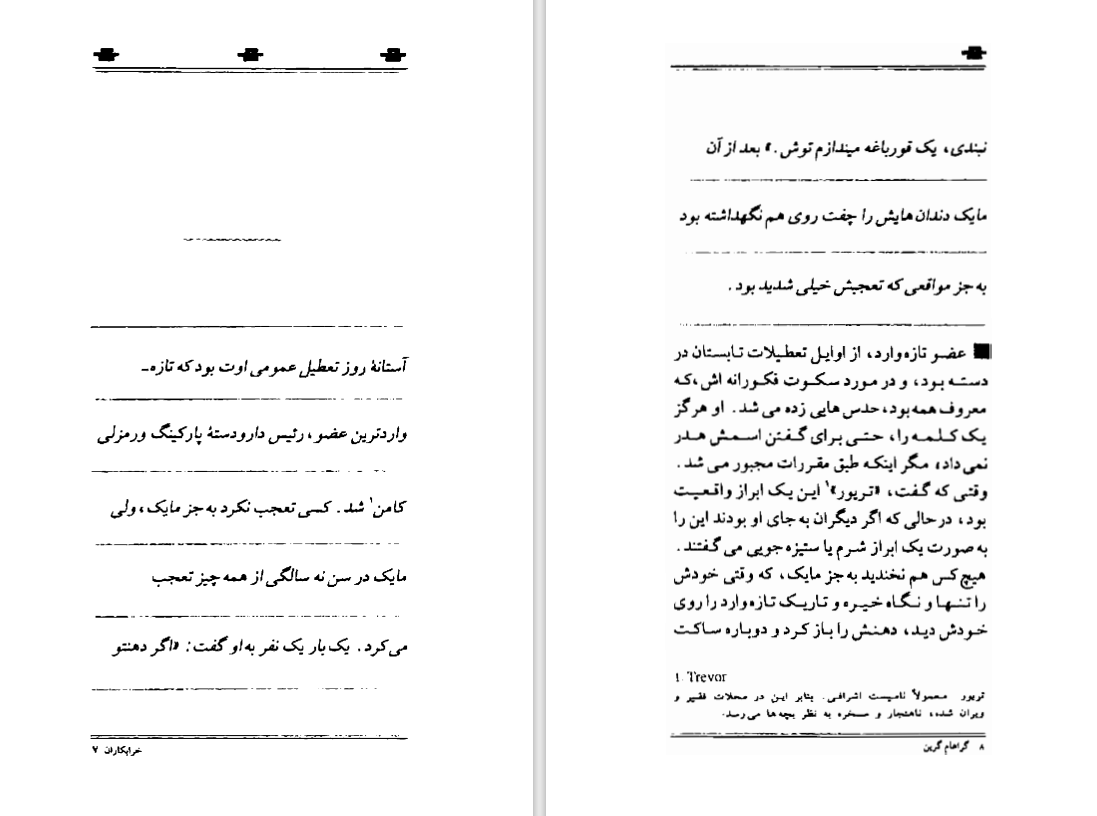 آستانهٔ روز تعطیل عمومی اوت بود که تازه‌ـ
واردترین عضو، رئیس دارودستهٔ پارکینگ ورمزلی
کامن۱ شد. کسی تعجب نکرد به جز مایک، ولی
مایک در سن نه سالگی از همه چیز تعجب
می‌کرد. یک بار یک نفر به او گفت: «اگر دهنتو
خرابکاران ۷
نبندی، یک قورباغه میندازم توش.» بعد از آن
مایک دندان‌هایش را چفت روی هم نگهداشته بود
به جز مواقعی که تعجبش خیلی شدید بود.
■ عضو تازه‌وارد، از اوایل تعطیلات تابستان در
دسته بود، و در مورد سکوت فکورانه اش، که
معروف همه بود، حدس هایی زده می شد. او هرگز
یک کلمه را، حتی برای گفتن اسمش هدر
نمی داد، مگر اینکه طبق مقررات مجبور می شد.
وقتی که گفت، «تریور»۱ این یک ابراز واقعیت
بود، در حالی که اگر دیگران به جای او بودند این را
به صورت یک ابراز شرم یا ستیزه جویی می گفتند.
هیچ کس هم نخندید به جز مایک، که وقتی خودش
را تنها و نگاه خیره و تاریک تازه وارد را روی
خودش دید، دهنش را باز کرد و دوباره ساکت
1. Trevor
تریور معمولاً نامیست اشرافی. بنابر این در محلات فقیر و
ویران شده، ناهنجار و مسخره به نظر بچه‌ها می‌رسد.
۸ گراهام گرین